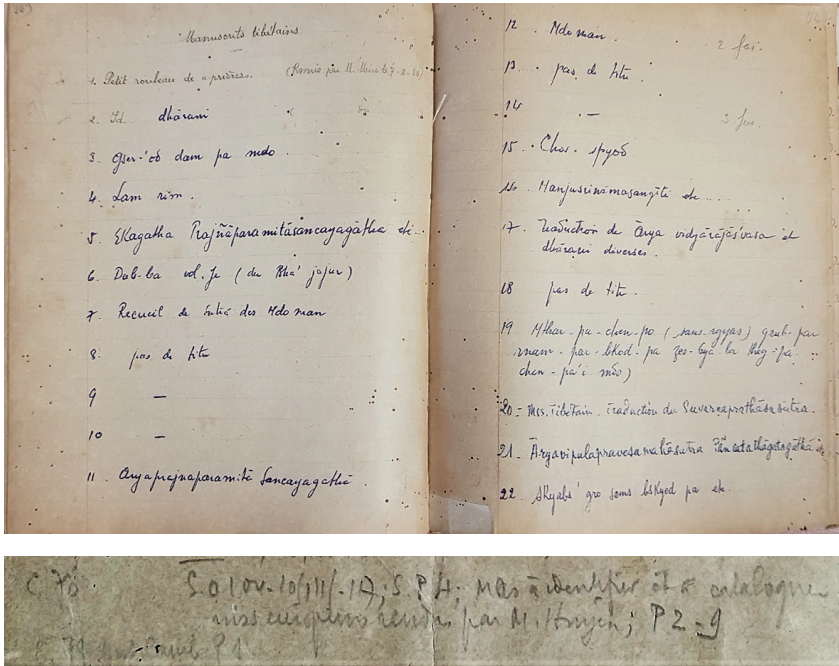 Manuscrits tibétains
1. Petit rouleau de "prières". (Remis par M.
2. Id. dhāraṇī
3. gser-'od dam pa mdo.
4. Lam rim.
5. SKagatha Prajñāparamitāsancayagāthā etc...
6. Dul-ba vol. Ja (du Bkā' jajur)
7. Recueil de sutra des Mdo man
8. pas de titre
9 —
10 —
11. Aryaprajnaparamitā Sancayagathā
12. Mdo man. 2 fas.
13. pas de titre
14 — 3 fas.
15. Chos. spyod
16. Manjusrināmasangiti etc....
17. Traduction de Ārya vidyārājāśvasa et
dhāraṇi diverses.
18 pas de titre.
19. Mthar-pa-chen-po (sans-rgyas) grub-par
rnam-par-bkod-pa zes-bya-ba theg-pa-
chen-pa'i mdo)
20. Mss. Tibétain. Traduction du Suvarnaprathāsasutra.
21. Āryavipulapravesamahāsutra Pāncatathāgatagāthā etc
22 sKyabs' gro sems bsKyed pa etc.
C. 76 S.010 4; mss à identifier et à cataloguer
mss européens rendus par M. P2-9